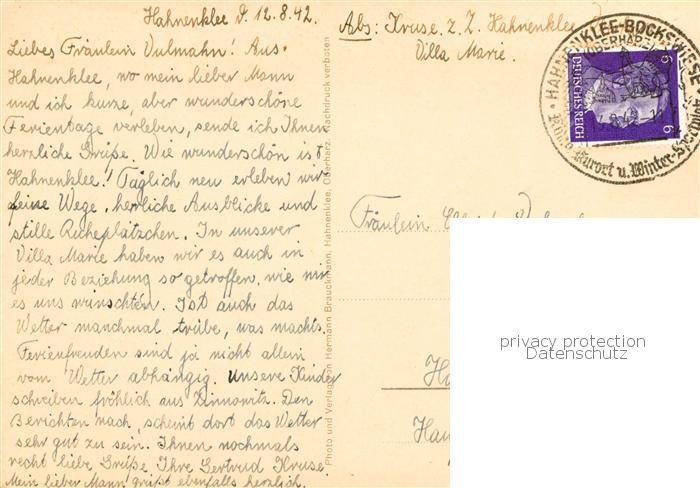 Hahnenklee d. 12.8.42.
Liebes Fräulein Vulmahn! Aus
Hahnenklee, wo mein lieber Mann
und ich kurze, aber wunderschöne
Ferientage verleben, sende ich Ihnen
herzliche Grüße. Wie wunderschön ist
Hahnenklee! Täglich neu erleben wir
feine Wege, herrliche Ausblicke und
stille Ruheplätzchen. In unserer
Villa Marie haben wir es auch in
jeder Beziehung so getroffen, wie wir
es uns wünschten. Ist auch das
Wetter manchmal trübe, was machts.
Ferienfreuden sind ja nicht allein
vom Wetter abhängig. Unsere Kinder
schreiben fröhlich aus Zinnowitz. Den
Berichten nach, scheint dort das Wetter
sehr gut zu sein. Ihnen nochmals
recht liebe Grüße Ihre Gertrud Kruse.
Mein lieber Mann grüßt ebenfalls herzlich.
Photo und Verlag von Hermann Brauckmann, Hahnenklee, Oberharz. Nachdruck verboten
Abs: Kruse. z. Z. Hahnenklee
Villa Marie.
HAHNENKLEE-BOCKSWIESE
OBERHARZ
Kurort u. Winter-Sportplatz
DEUTSCHES REICH
6
6
Fräulein
Ha
privacy protection
Datenschutz